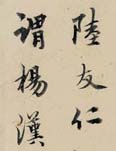 陸友仁
謂楊漢